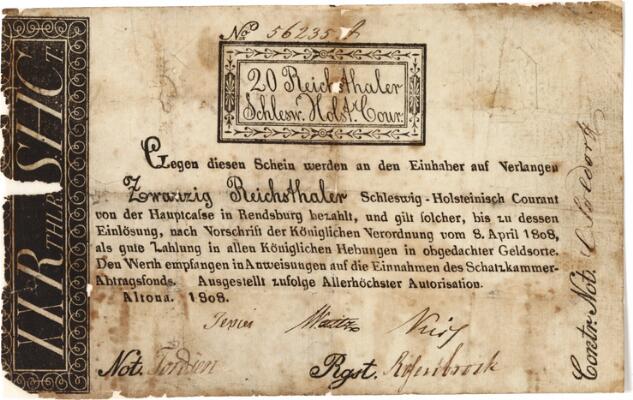 No 56235 A
20 Reichsthaler
Schlesw. Holst. Cour.
Gegen diesen Schein werden an den Einhaber auf Verlangen
Zwanzig Reichsthaler Schleswig-Holsteinisch Courant
von der Hauptcasse in Rendsburg bezahlt, und gilt solcher, bis zu dessen
Einlösung, nach Vorschrift der Königlichen Verordnung vom 8. April 1808,
als gute Zahlung in allen Königlichen Hebungen in obgedachter Geldsorte.
Den Werth empfangen in Anweisungen auf die Einnahmen des Schatzkammer-
Abtragsfonds. Ausgestellt zufolge Allerhöchster Autorisation.
Altona. 1808.
Not. Rgst.
XXR THLR SHCT
Contir Not.